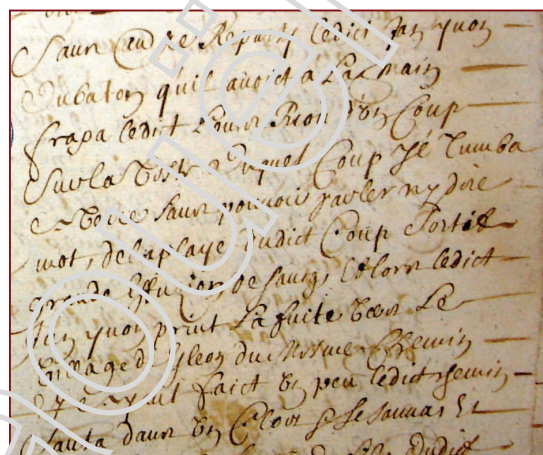 Sans aud de Reparty ledict Jan yvon
Dubaton quil avoict a La main
frapa ledict Louis Riou d'un Coup
Sur la teste duquel Coup Il tumba
a terre sans pouvoir parler ny dire
mot, de la playe dudict Coup sortit
grande effuzion de sang, et lors ledict
Jan yvon print La fuite vers Le
village de du mesme chemin
et ayant faict un peu ledict chemin
sauta dans un Clos se sauvas et
dudict